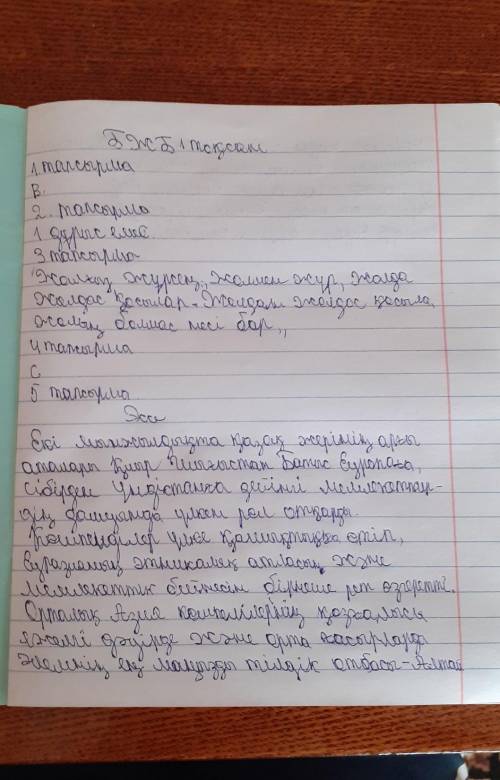 БЖБ 1 тоқсан
1 тапсырма
В.
2. тапсырма
1 дұрыс емес
3 тапсырма
"Жалғыз жүрсең, жолмен жүр, жолда
жолдас қосылар. Жолдан жолдас қосыла
жолың болмас несі бар,,
4 тапсырма
С
5 тапсырма
Эссе
Екі мыңжылдықта қазақ жерінің арғы
аталары Қиыр Шығыстан Батыс Еуропаға,
Сібірден Үндістанға дейінгі мемлекеттер-
дің дамуында үлкен рөл отқарды.
Көшпенділер үлкен қашықтықва өтіп,
Еуразияның этникалық атласын және
мемлекеттік бейнесін бірнеше рет өзгертті.
Орталық Азия көшпелілерінің қозғалысы
ежелгі дәуірде және орта ғасырларда
әлемнің ең маңызды тілдік отбасы-Алтай